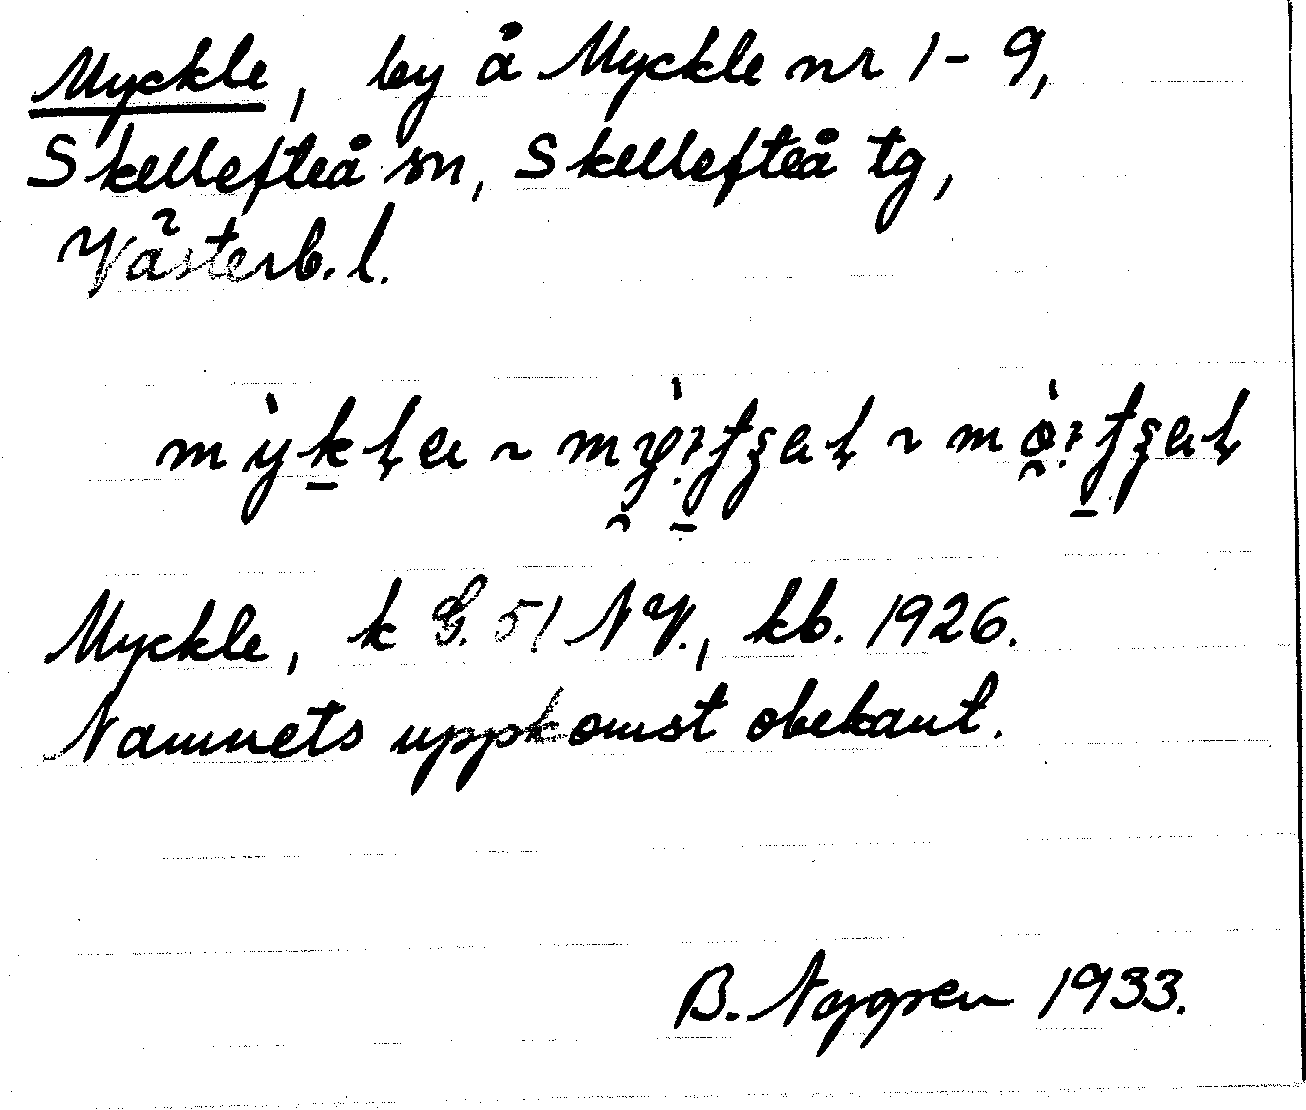 Myckle, by å Myckle nr 1-9,
Skellefteå sn, Skellefteå tg,
Västerb. l.
Myckle, k G. 51 NV., kb. 1926.
Namnets uppkomst obekant.
B. Nygren 1933.